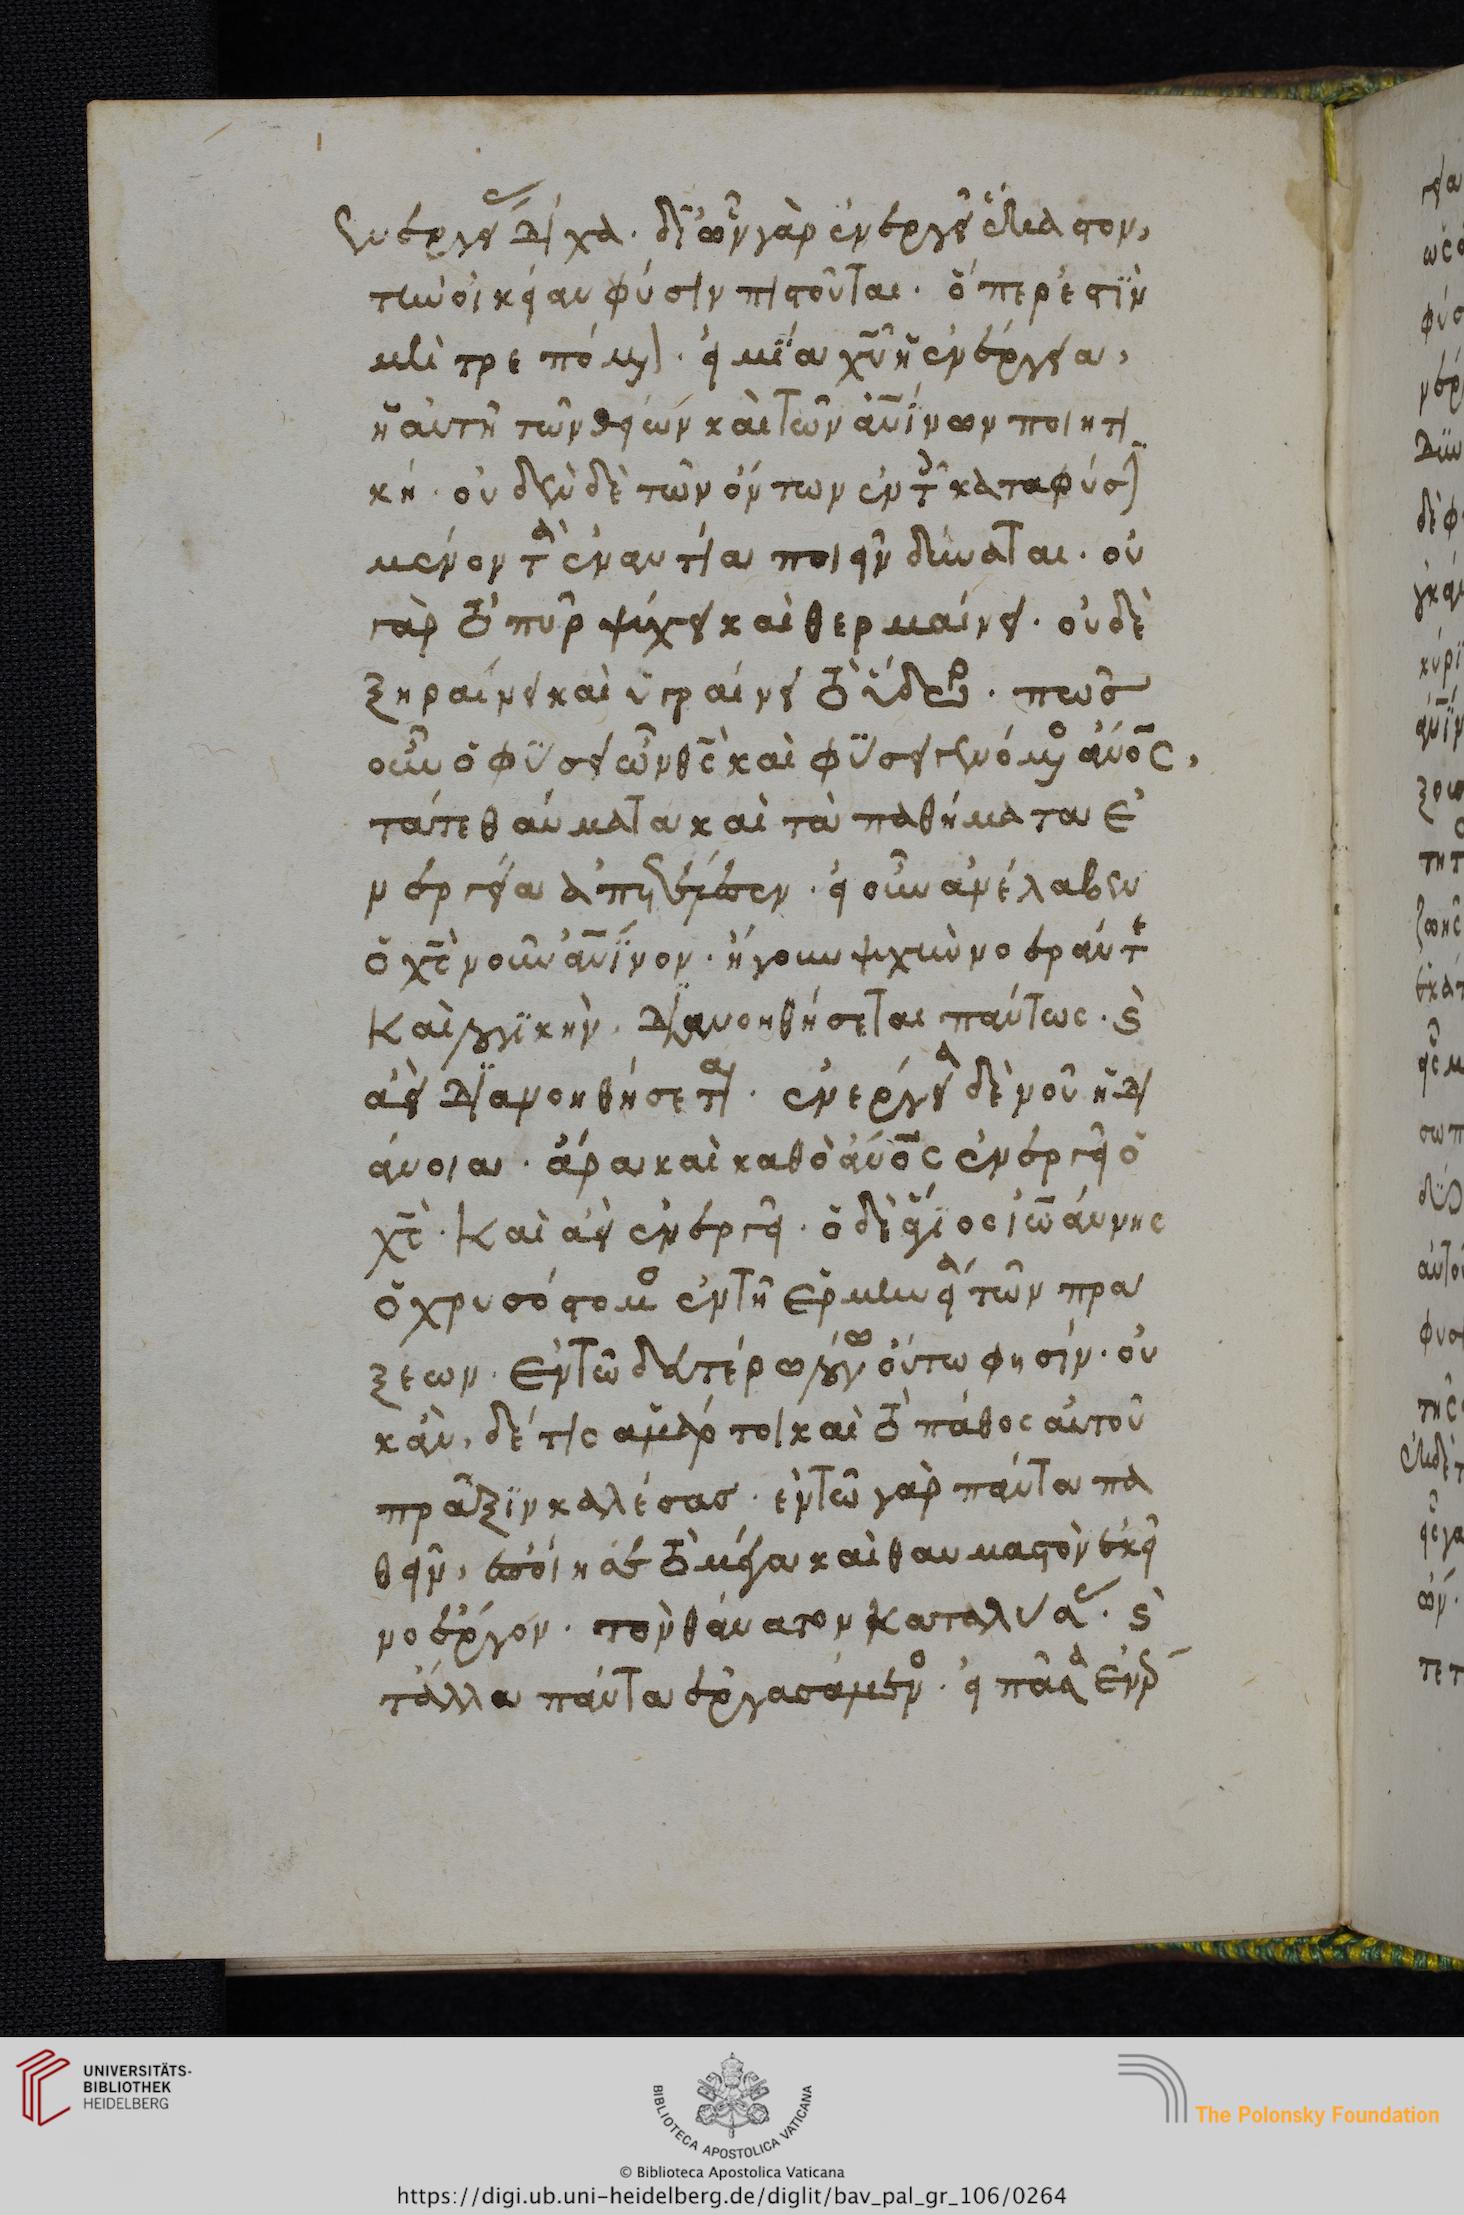 ἐνεργείας δίχα. δι' ὧν γὰρ ἐνεργεῖ ἕκαστον,
τὴν οἰκείαν φύσιν πιστοῦται. ὅπερ ἐστὶν
μὴ τρεπόμενον. εἰ μία χ̅υ̅ ἡ ἐνέργεια,
ἡ αὐτὴ τῶν θείων καὶ τῶν ἀ̅ν̅ίνων ποιητι
κή. οὐδὲν δὲ τῶν ὄντων ἐν τῶ κατὰ φύσιν
μένον τὰ ἐναντία ποιεῖν δύναται. οὐ
γὰρ τὸ πῦρ ψύχει καὶ θερμαίνει. οὐδὲ
ξηραίνει καὶ ὑγραίνει τὸ ὕδωρ. πῶς
οὖν ὁ φύσει ὢν θ̅ς̅ καὶ φύσει γενόμενος ἄ̅ν̅ο̅ς̅,
τά τε θαύματα καὶ τὰ παθήματα ἐ
νεργεία ἀπετέλεσεν. εἰ οὖν ἀνέλαβεν
ὁ χ̅ς̅ νοῦν ἀ̅ν̅ινον. ἤγουν ψυχὴν νοεράν τε
καὶ λογικὴν, διανοηθήσεται πάντως. καὶ
ἀεὶ διανοηθήσεται. ἐνέργεια δὲ νοῦ ἡ δι
άνοια. ἄρα καὶ καθὸ ἄ̅ν̅ο̅ς̅ ἐνεργεῖ ὁ
χ̅ς̅. καὶ ἀεὶ ἐνεργεῖ. ὁ δὲ ἅγιος ἰωάννης
ὁ χρυσόστομος ἐν τῆ ἑρμηνεία τῶν πρά
ξεων. ἐν τῶ δευτέρω λόγω οὕτω φησίν. οὐ
κ ἂν, δέ τις ἁμάρτοι καὶ τὸ πάθος αὐτοῦ
πρᾶξιν καλέσας. ἐν τῶ γὰρ πάντα πα
θεῖν, ἐποίησε τὸ μέγα καὶ θαυμαστὸν ἐκεῖ
νο ἔργον. τὸν θάνατον καταλύσας. καὶ
τἄλλα πάντα ἐργασάμενος. εἰ πᾶσα ἐνέρ
UNIVERSITÄTS-
BIBLIOTHEK
HEIDELBERG
BIBLIOTECA APOSTOLICA VATICANA
The Polonsky Foundation
© Biblioteca Apostolica Vaticana
https://digi.ub.uni-heidelberg.de/diglit/bav_pal_gr_106/0264